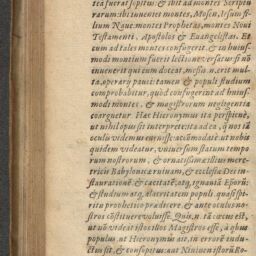 tea fuerat sopitus, & ibit ad montes Scriptu
rarum: ibi inuenies montes, Mosen, Iesum fi-
lium Naue: montes Prophetas, montes Noui
Testamenti, Apostolos & Euangelistas. Et
cum ad tales montes confugerit, & in huius-
modi montium fuerit lectione versatus: si nō
inuenerit qui eum doceat, messis .n. erit mul-
ta, operarij pauci: tamen & populi studium
comprobabitur, quòd confugerit ad huius-
modi montes, & magistrorum negligentia
coarguetur. Hæc Hieronymus ita perspicuè,
ut nihil opus sit interprete: ita deo, quasi is
oculis videmus euenisse: accōmodatè: ut nobis
quidem videatur, vniuersum statum tempo
rum nostrorum, & ornatissimæ illius mere-
tricis Babylonicæ ruinam, & ecclesiæ Dei in
staurationē, & cæcitatē, atq, ignauiā Eporū:
& studium atq, alacritatem populi quasi spi-
ritu prophetico prædicere, & ante oculos no-
stros cōstituere voluisse. Quis .n. tā cæcus est,
ut nō videat istos illos Magistros esse, à qbus
populus, ut Hieronymus ait, in errorē indu-
ctus sit, & consopitus: aut Niniuen istorū Ro-